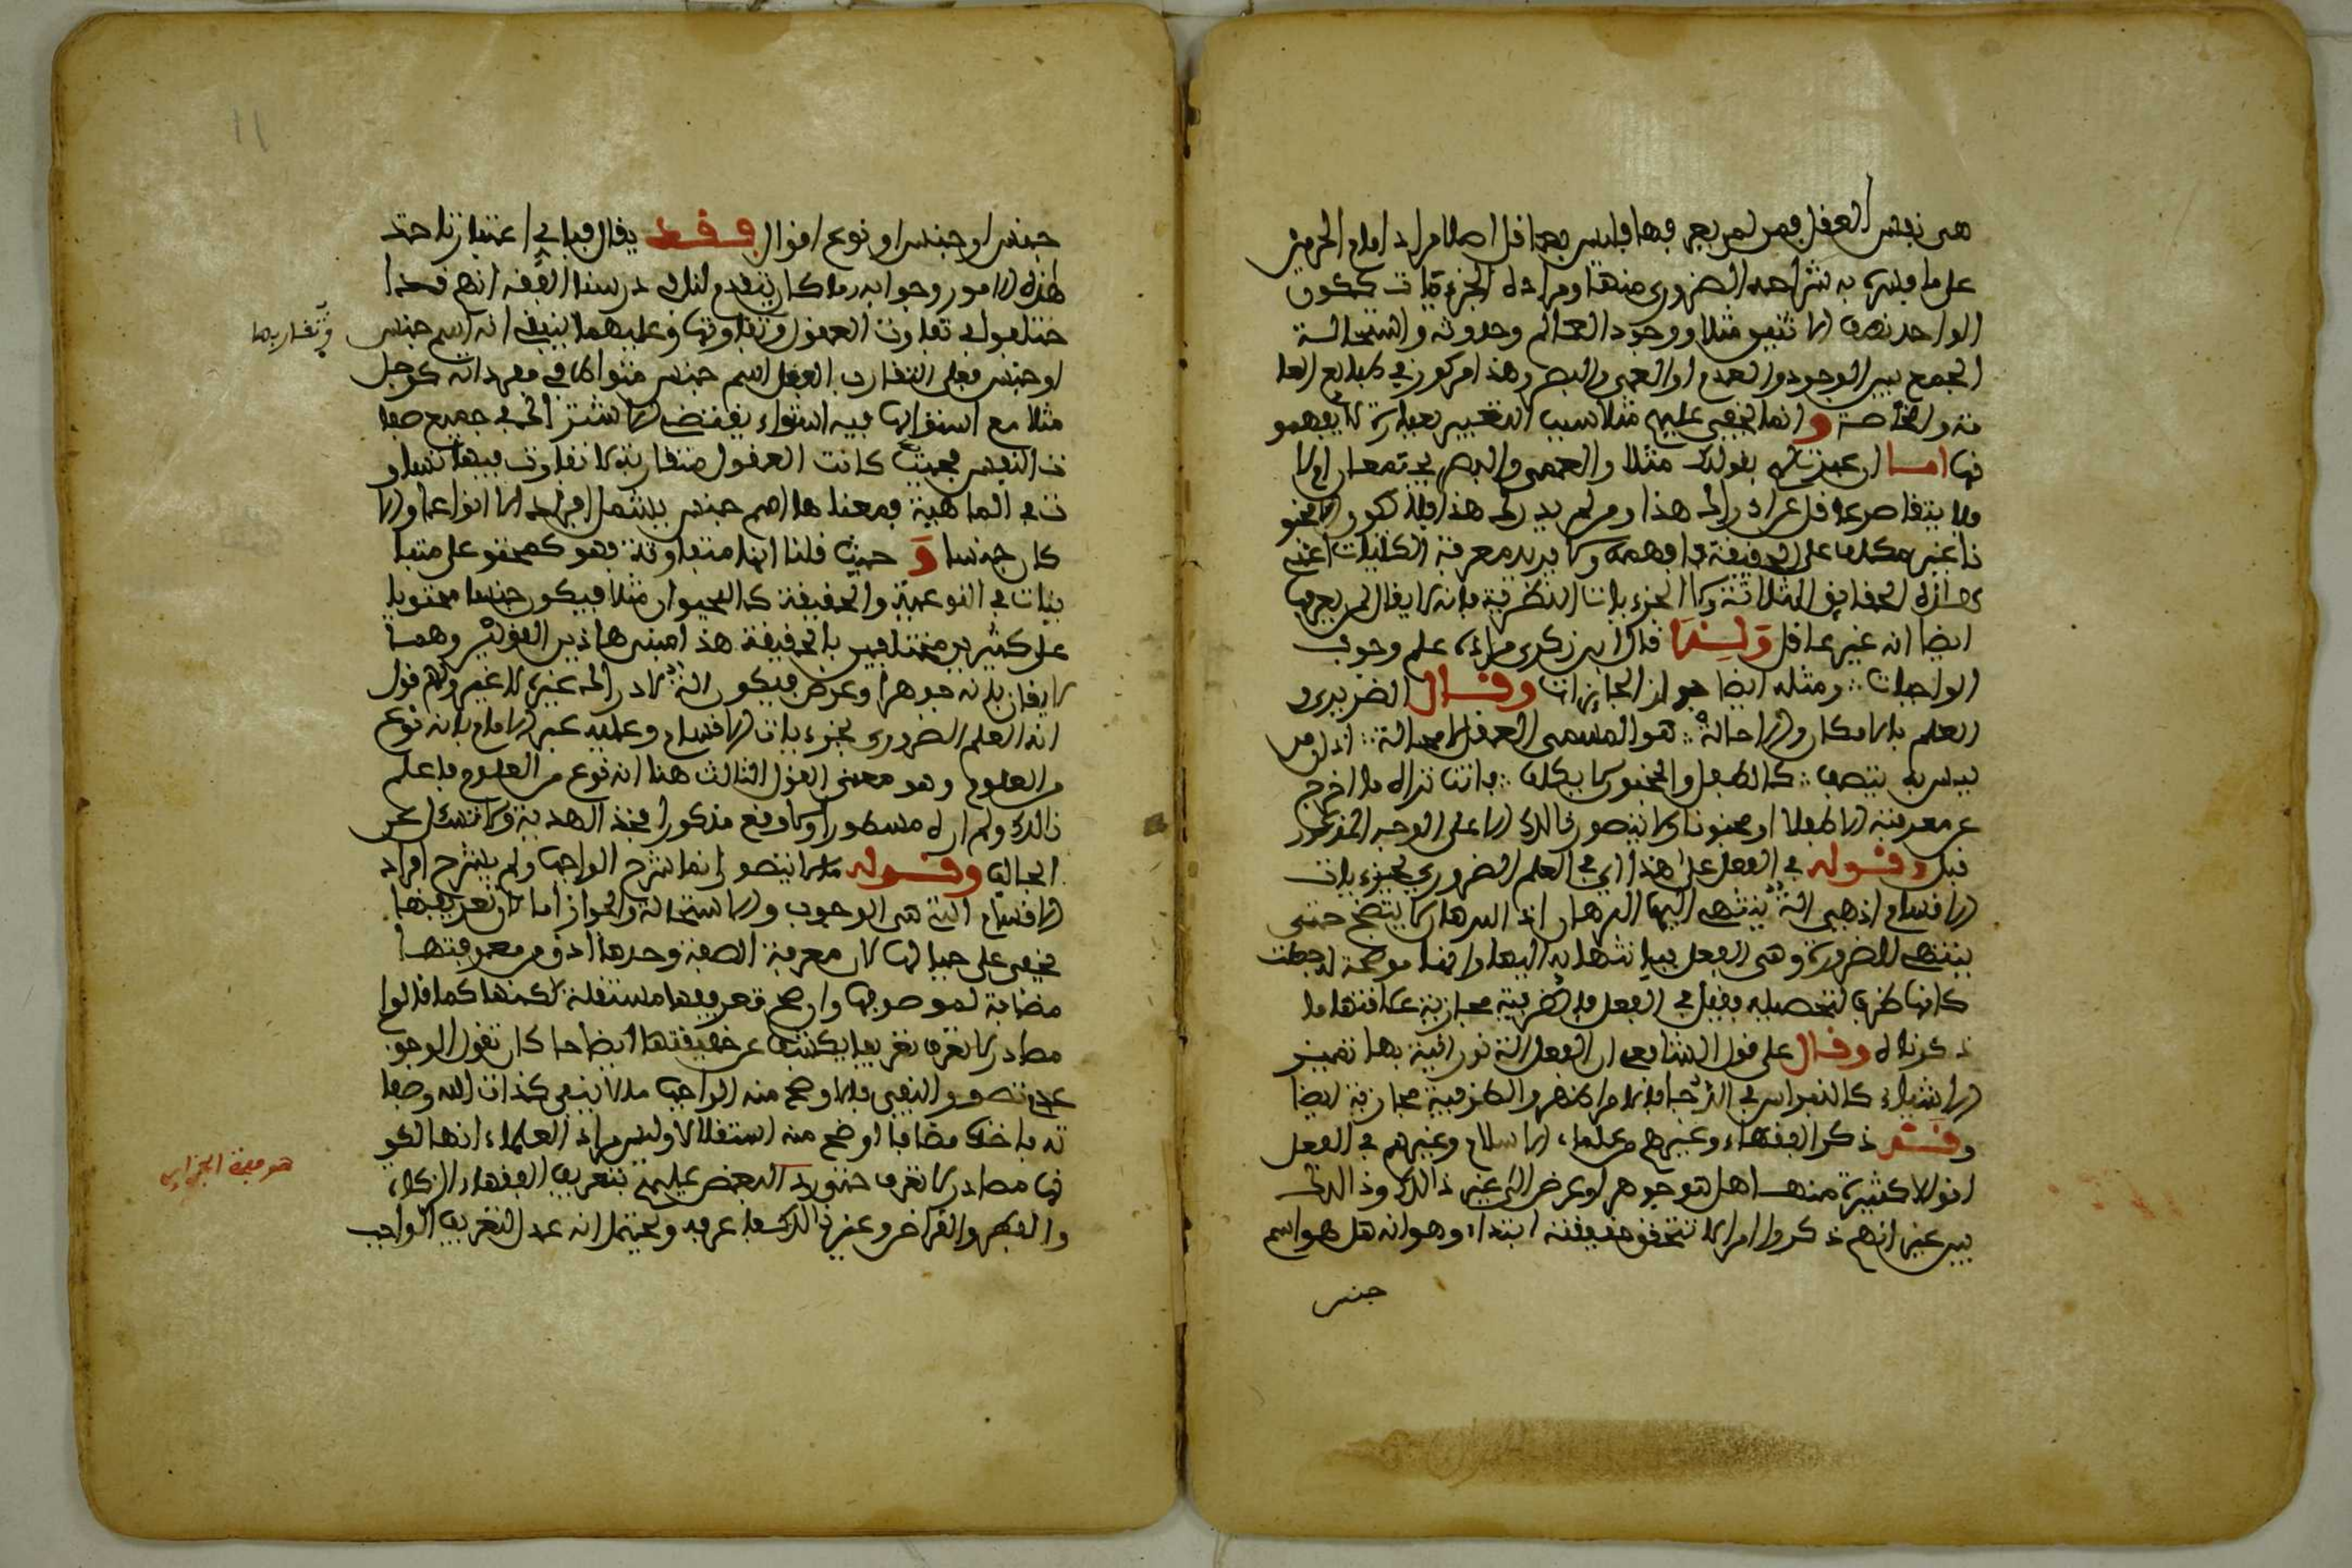 هي نفس العقل فمن لم يعرفها فليس بعاقل اصلا مراد امام الحرمين
على ما فسره به شراحه الضروري منها ومراده الجزءيات ككون
الواحد نصف الاثنين مثلا ووجود العالم وحدوثه واستحالة
الجمع بين الوجود والعدم او العمى والبصر وهذا مركوز في طبايع العا
مة والخاصة وانما يخفى عليهم مثلا سبب التعبير بعبارة لا يفهمو
نها اما ان عبرت لهم بقولك مثلا والعمى والبصر يجتمعان ام لا
فلا يتقاصر عاقل عن ادراك هذا ومن لم يدرك هذا فلا يكون الا مجنو
نا غير مكلف على الحقيقة فافهمه ولا يريد معرفة الكليات اعني
هذه الحقايق الثلاثة ولا الجزءيات النظرية فانه لا يقال لمن لم يعرفها
ايضا انه غير عاقل ولهذا قال ابن زكري مراده علم وجوب
الواجبات ∴ ومثله ايضا جواز الجايزات وقال الضريري
العلم بالامكان والاحالة ∴ هو المسمى العقل لا محالة ∴ اذ كل من
ليس به يتصف ∴ كالطفل والمجنون لا يكلف ∴ فانت تراه ما اخرج
عن معرفته الا طفلا او مجنونا ولا يتصور ذالك الا على الوجه المذكور
قبل وقوله في العقل على هذا اي في العلم الضروري بجزءيات
الاقسام اذ هي التي ينتهي اليها البرهان اذ البرهان لا يتضح حتى
ينتهي للضرورة وهي العقل فبانتهايه اليها وايضا موضحة له جعلت
كانها ظرف لتحصيله فقيل في العقل فالظرفية مجازية علاقتها ما
ذكرناه وقال على قول الشافعي ان العقل الة نورانية بها تمييز
الاشياء كالنبراس في الدجا فلا مرا ظهر والظرفية مجازية ايضا
وقد ذكر الفقهاء وغيرهم من علماء الاسلام وغيرهم في العقل
اقوالا كثيرة منها هل هو جوهر او عرض الى غير ذالك وذالك
بين غير انهم ذكروا امرا لا تتحقق حقيقته ابتداء وهو انه هل هو اسم
جنس
جنس او جنس او نوع اقوال فقط يقال فيها في اعتبارنا حتى
هذه الامور وجوابه ما كان يتقدم لنا في درسنا الفقه انهم قد ا
ختلفوا في تفاوت العقول وتفاوتها وعليهما ينبني انه اسم جنس
وتقاربها
او جنس فعلى التقارب العقل اسم جنس متواطئ في مفرداته كرجل
مثلا مع استوايها فيه استواء يقتضي الاشتراك في جميع صفا
ت النفس فحيث كانت العقول متقاربة لا تفاوت فيها تساو
ت في الماهية فمعناها اسم جنس يشمل افراده لا انواعا ولا
كان جنسا وحيث قلنا انها متفاوتة فهو كمحتو على متبا
ينات في النوعية والحقيقة كالحيوان مثلا فيكون جنسا محتويا
على كثيرين مختلفين بالحقيقة هذا مبنى هاذين القولين وهما
لا يفان بانه جوهرا وعرض فيكون الة لادراك غيره لا غير ولهم قول
انه العلم الضروري بجزءيات الاقسام وعليه عبر الامام بانه نوع
من العلوم وهو معنى القول الثالث هنا انه نوع من العلوم فاعلم
ذالك ولم اره مسطورا ولا وقع مذكورا فخذ الهدية ولا تسئل عن
الجالب وقوله ما لا يتصور انما شرح الواجب ولم يشرح افراد
الاقسام التي هي الوجوب والاستحالة والجواز اما لان تعريفها
يخفى على حيالها لان معرفة الصفة وحدها ادق من معرفتها
مضافة لموصوفها وان صح تعريفها مستقلة لكنها كما قالوا
مصادر لا تعرف تعريفا يكشف عن حقيقتها ايضاحا كان تقول الوجوب
عدم تصور النفي فالاوضح منه الواجب ما لا ينتفي كذات الله وصفا
ته فاخذه مضافا اوضح منه استقلالا وليس مراد العلماء انها لكو
نها مصادر لا تعرف حتى ورد البعض عليهم بتعريف الفقهاء الزكاة
هو معنى الجزاير
والفطر والقراض وغير ذالك فما عرفه ويحتمل انه عدل لتعريف الواجب